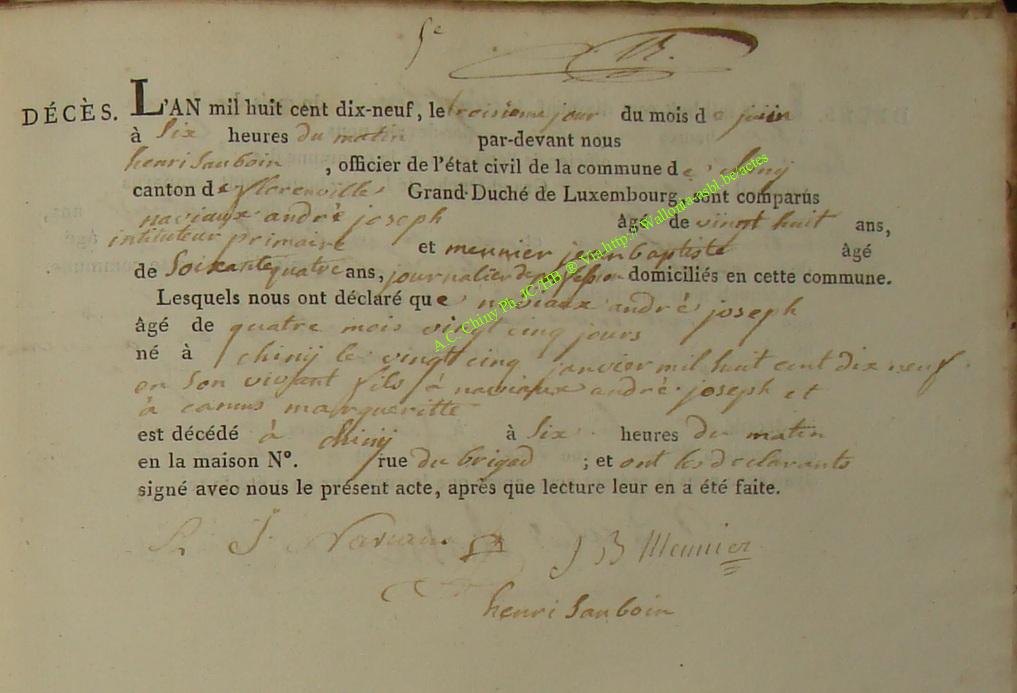 5e
DÉCÈS. L'AN mil huit cent dix-neuf, le troisieme jour du mois de juin
à Six heures du matin par-devant nous
henri Sauboin, officier de l'état civil de la commune de chinÿ
canton de florenville Grand-Duché de Luxembourg, sont comparus
naviaux andré joseph âgé de vingt huit ans,
intituteur primaire et meunier jean baptiste âgé
de Soixante quatre ans, journalier de profession domiciliés en cette commune.
Lesquels nous ont déclaré que naviaux andré joseph
âgé de quatre mois vingt cinq jours
né à chinÿ le vingt cinq janvier mil huit cent dix neuf
en Son vivant fils à naviaux andré joseph et
à camus margueritte
est décédé à chinÿ à Six heures du matin
en la maison N°. rue du brigad ; et ont les declarants
signé avec nous le présent acte, après que lecture leur en a été faite.
J. Naviaux J B Meunier
henri Sauboin
A.C. Chiny Ph JC HB @ Via http:// Wallonia-asbl.be/actes